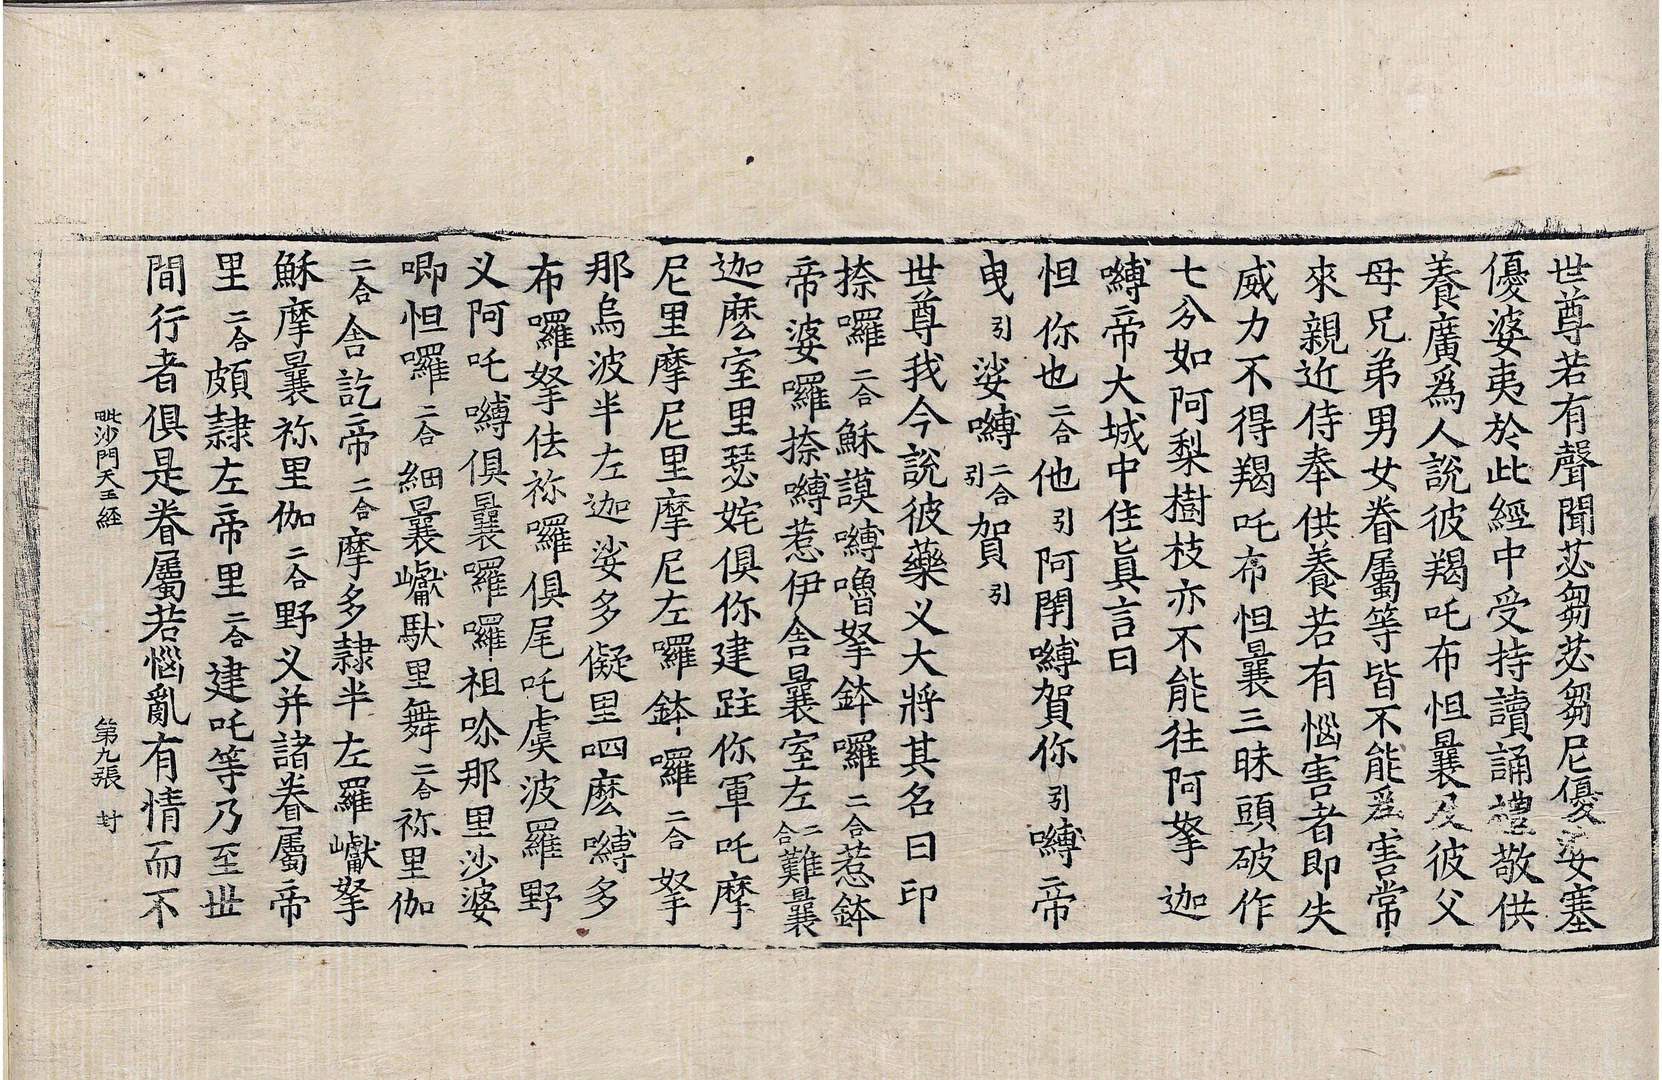 世尊若有聲聞苾芻苾芻尼優婆塞
優婆夷於此經中受持讀誦禮敬供
養廣爲人說彼羯吒布怛曩及彼父
母兄弟男女眷屬等皆不能爲害常
來親近侍奉供養若有惱害者即失
威力不得羯吒布怛曩三昧頭破作
七分如阿梨樹枝亦不能往阿拏迦
嚩帝大城中住眞言曰
怛你也二合他引阿閉嚩賀你引嚩帝
曳引娑嚩二合引賀引
世尊我今說彼藥义大將其名曰印
捺囉二合穌謨嚩嚕拏鉢囉二合惹鉢
帝婆囉捺嚩惹伊舍曩室左二合難曩
迦麽室里瑟姹俱你建跓你軍吒摩
尼里摩尼里摩尼左囉鉢囉二合拏
那烏波半左迦娑多儗里呬麽嚩多
布囉拏佉祢囉俱尾吒虞波羅野
义阿吒嚩俱曩囉囉祖哝那里沙婆
唧怛囉二合細曩巘馱里舞二合祢里伽
二合舍訖帝二合摩多隷半左羅巘拏
穌摩曩祢里伽二合野义并諸眷屬帝
里二合頗隷左帝里二合建吒等乃至世
間行者俱是眷屬若惱亂有情而不
毗沙門天王經 第九張 封